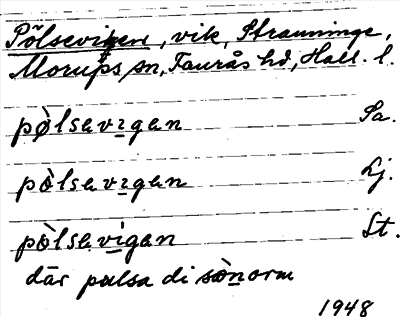 Pölsevigen, vik, Strauninge,
Morups sn, Faurås hd, Hall. l.
pòlsavıgan Sa.
pòlsavıgan Lj.
pòlsavigan St.
där pulsa di sònorm
1948